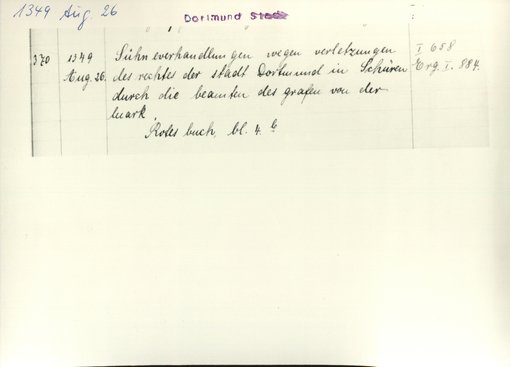 1349 Aug. 26
Dortmund Stadt
370 1349 Sühneverhandlungen wegen verletzungen I 658
Aug. 26. des rechtes der stadt Dortmund in Schüren Erg. I. 884.
durch die beamten des grafen von der
Mark.
Rotes buch, bl. 4. b